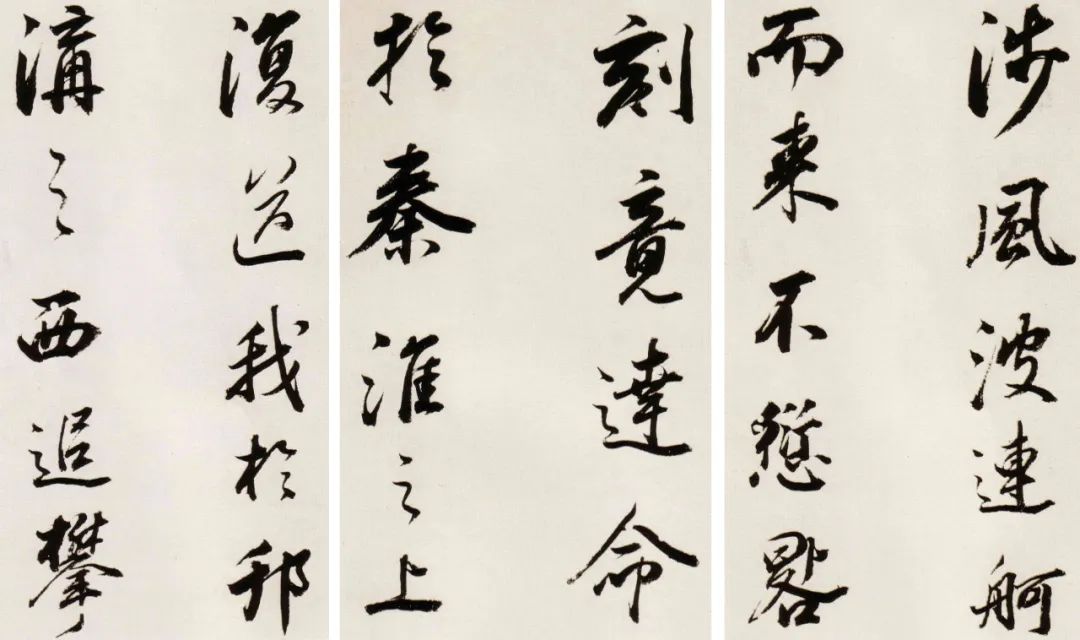 涉風波連舸
而來不愆晷
刻竟達命
於秦淮之上
復我於邗
溝之西追攀